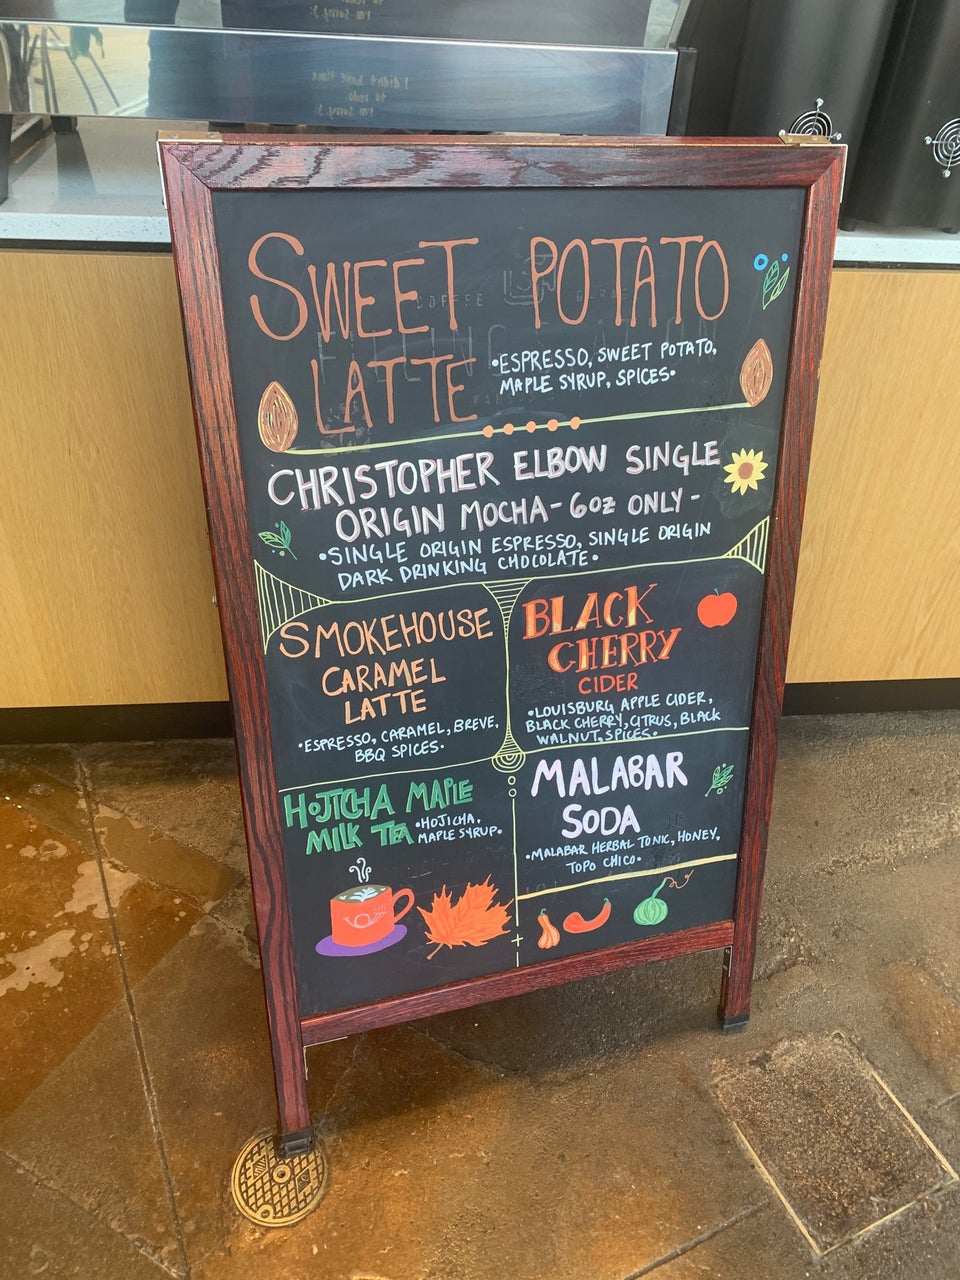 SWEET POTATO
LATTE
•ESPRESSO, SWEET POTATO,
MAPLE SYRUP, SPICES•
CHRISTOPHER ELBOW SINGLE
ORIGIN MOCHA - 6oz ONLY -
•SINGLE ORIGIN ESPRESSO, SINGLE ORIGIN
DARK DRINKING CHOCOLATE•
SMOKEHOUSE
CARAMEL
LATTE
•ESPRESSO, CARAMEL, BREVE,
BBQ SPICES•
BLACK
CHERRY
CIDER
•LOUISBURG APPLE CIDER,
BLACK CHERRY, CITRUS, BLACK
WALNUT, SPICES•
HOJICHA MAPLE
MILK TEA
•HOJICHA,
MAPLE SYRUP•
MALABAR
SODA
•MALABAR HERBAL TONIC, HONEY,
TOPO CHICO•